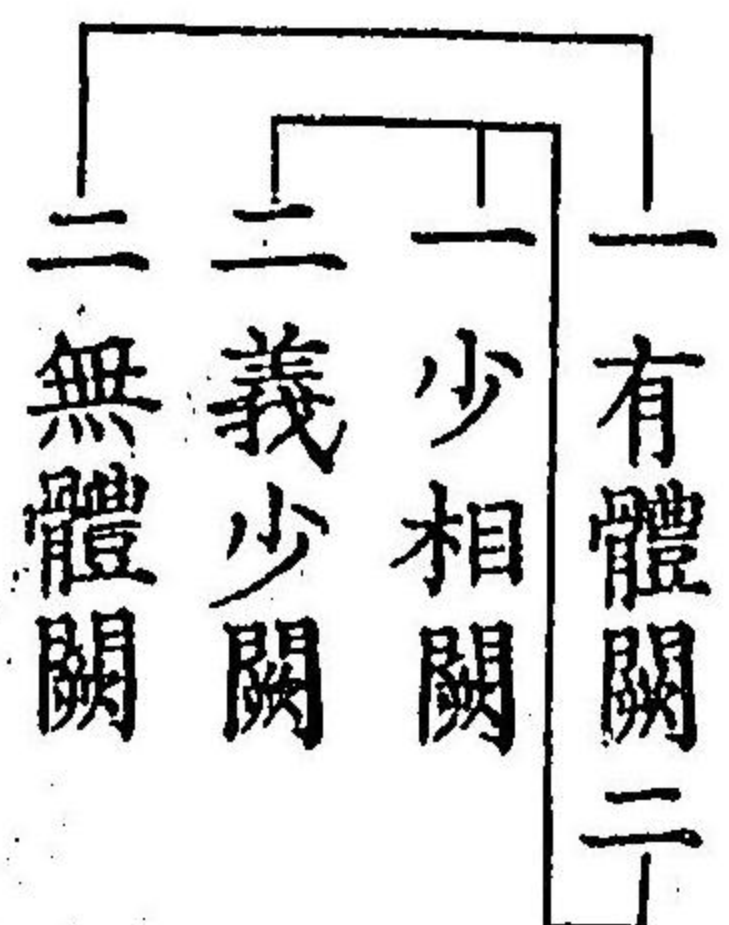 一有體闕二
一少相闕
二義少闕
二無體闕